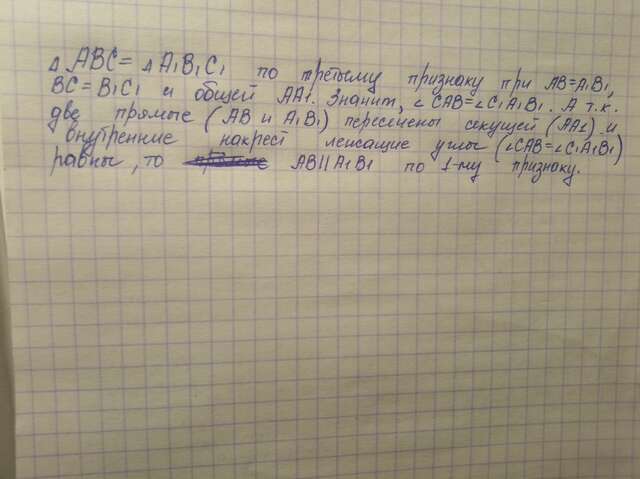 △ ABC = △ A₁B₁C₁ по третьему признаку при AB=A₁B₁,
BC=B₁C₁ и общей AA₁. Значит, ∠CAB=∠C₁A₁B₁. А т.к.
две прямые (AB и A₁B₁) пересечены секущей (AA₁) и
внутренние накрест лежащие углы (∠CAB=∠C₁A₁B₁)
равны, то AB||A₁B₁ по 1-му признаку.